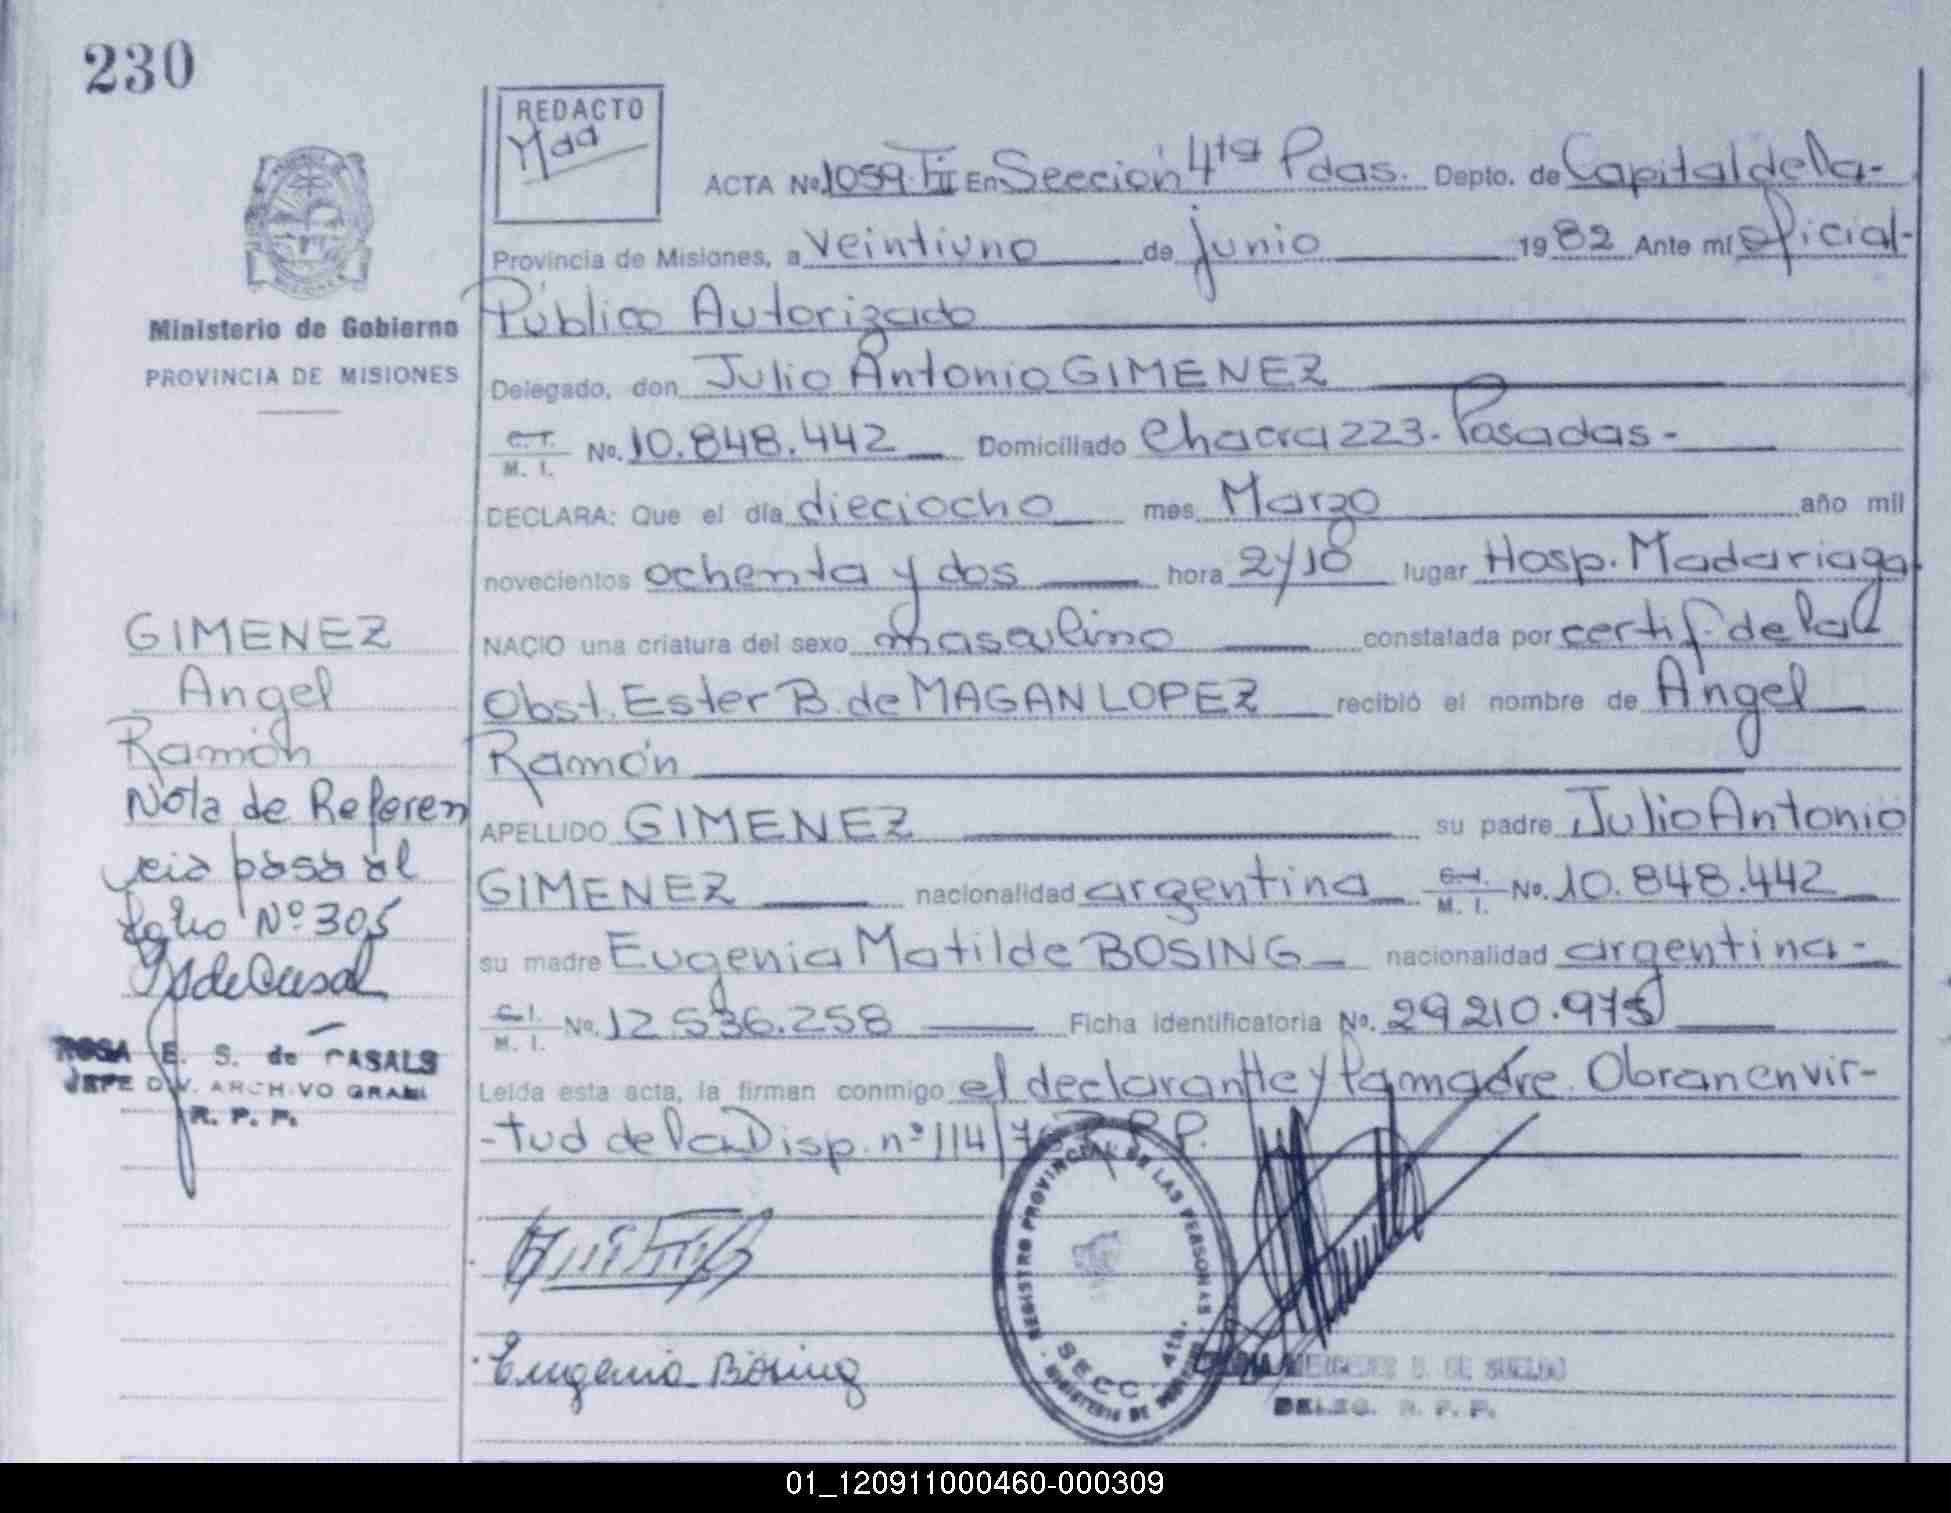 230
REDACTO
Mdd
ACTA No. 1059. T II En Sección 4ta Pdas. Depto. de Capital de la-
Provincia de Misiones, a veintiuno de junio 1982 Ante mí oficial-
Público Autorizado
Delegado, don Julio Antonio GIMENEZ
C. I. M. I. No. 10.848.442 Domiciliado Chacra 223- Posadas-
DECLARA: Que el día dieciocho mes Marzo año mil
novecientos ochenta y dos hora 2y10 lugar Hosp. Madariaga
NACIO una criatura del sexo masculino constatada por certif. de la
Obst. Ester B. de MAGAN LOPEZ recibió el nombre de Angel
Ramón
APELLIDO GIMENEZ su padre Julio Antonio
GIMENEZ nacionalidad argentina C. I. M. I. No. 10.848.442
su madre Eugenia Matilde BOSING nacionalidad argentina-
C. I. M. I. No. 12.536.258 Ficha identificatoria No. 29.210.975
Leída esta acta, la firman conmigo el declarante y la madre. Obran en vir-
-tud de la Disp. nº 114/ R.P.P.
Eugenia Bösing
REGISTRO PROVINCIAL DE LAS PERSONAS
SECC. 4ta.
MINISTERIO DE
DE SUELDO
DELEG. R. P. P.
Ministerio de Gobierno
PROVINCIA DE MISIONES
GIMENEZ
Angel
Ramón
Nota de Referen
cia pasa al
folio Nº 305
de Casal
ROSA E. S. de CASALS
JEFE DIV. ARCHIVO GRAL
R. P. P.
01_120911000460-000309